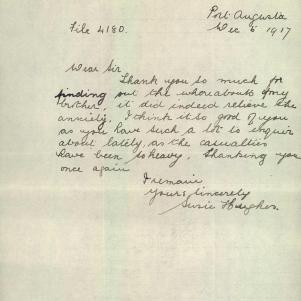 Port Augusta
File 4180. Dec 5 1917
Dear Sir
Thank you so much for
finding out the whereabouts of my
brother, it did indeed relieve the
anxiety. I think it so good of you
as you have such a lot to enquire
about lately, as the casualties
have been so heavy. Thanking you
once again
I remain
Yours sincerely
Susie Hughes